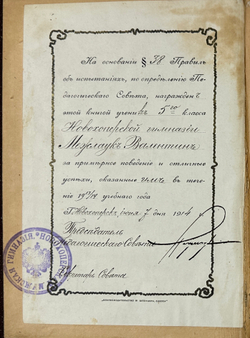 На основанiи § 38 Правилъ
объ испытанiяхъ, по опредѣленiю Пе-
дагогическаго Совѣта, награжденъ
этой книгой ученикъ 5го класса
Новохоперской гимназiи
Межлаукъ Валентинъ
за примѣрное поведенiе и отличные
успѣхи, оказанные имъ въ тече-
нiе 1913/14 учебнаго года
Г. Новохоперскъ, iюня 7 дня 1914 г.
Предсѣдатель
Педагогическаго Совѣта
Секретарь Совѣта